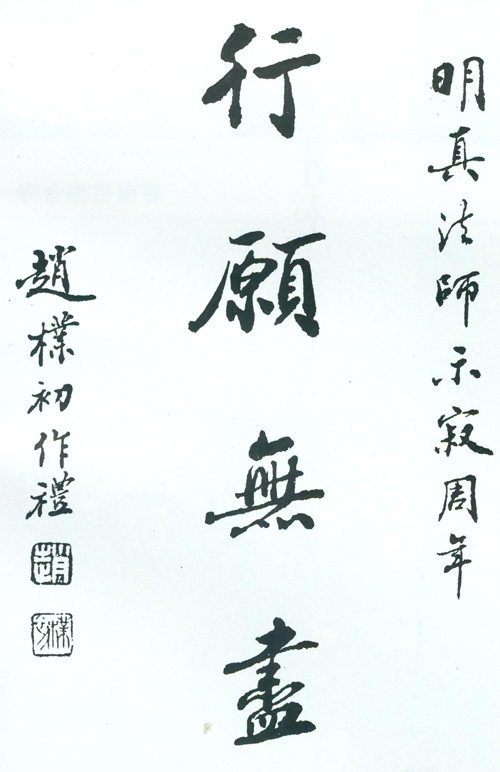 明真法師示寂周年
行願無盡
趙樸初作禮
趙
樸初